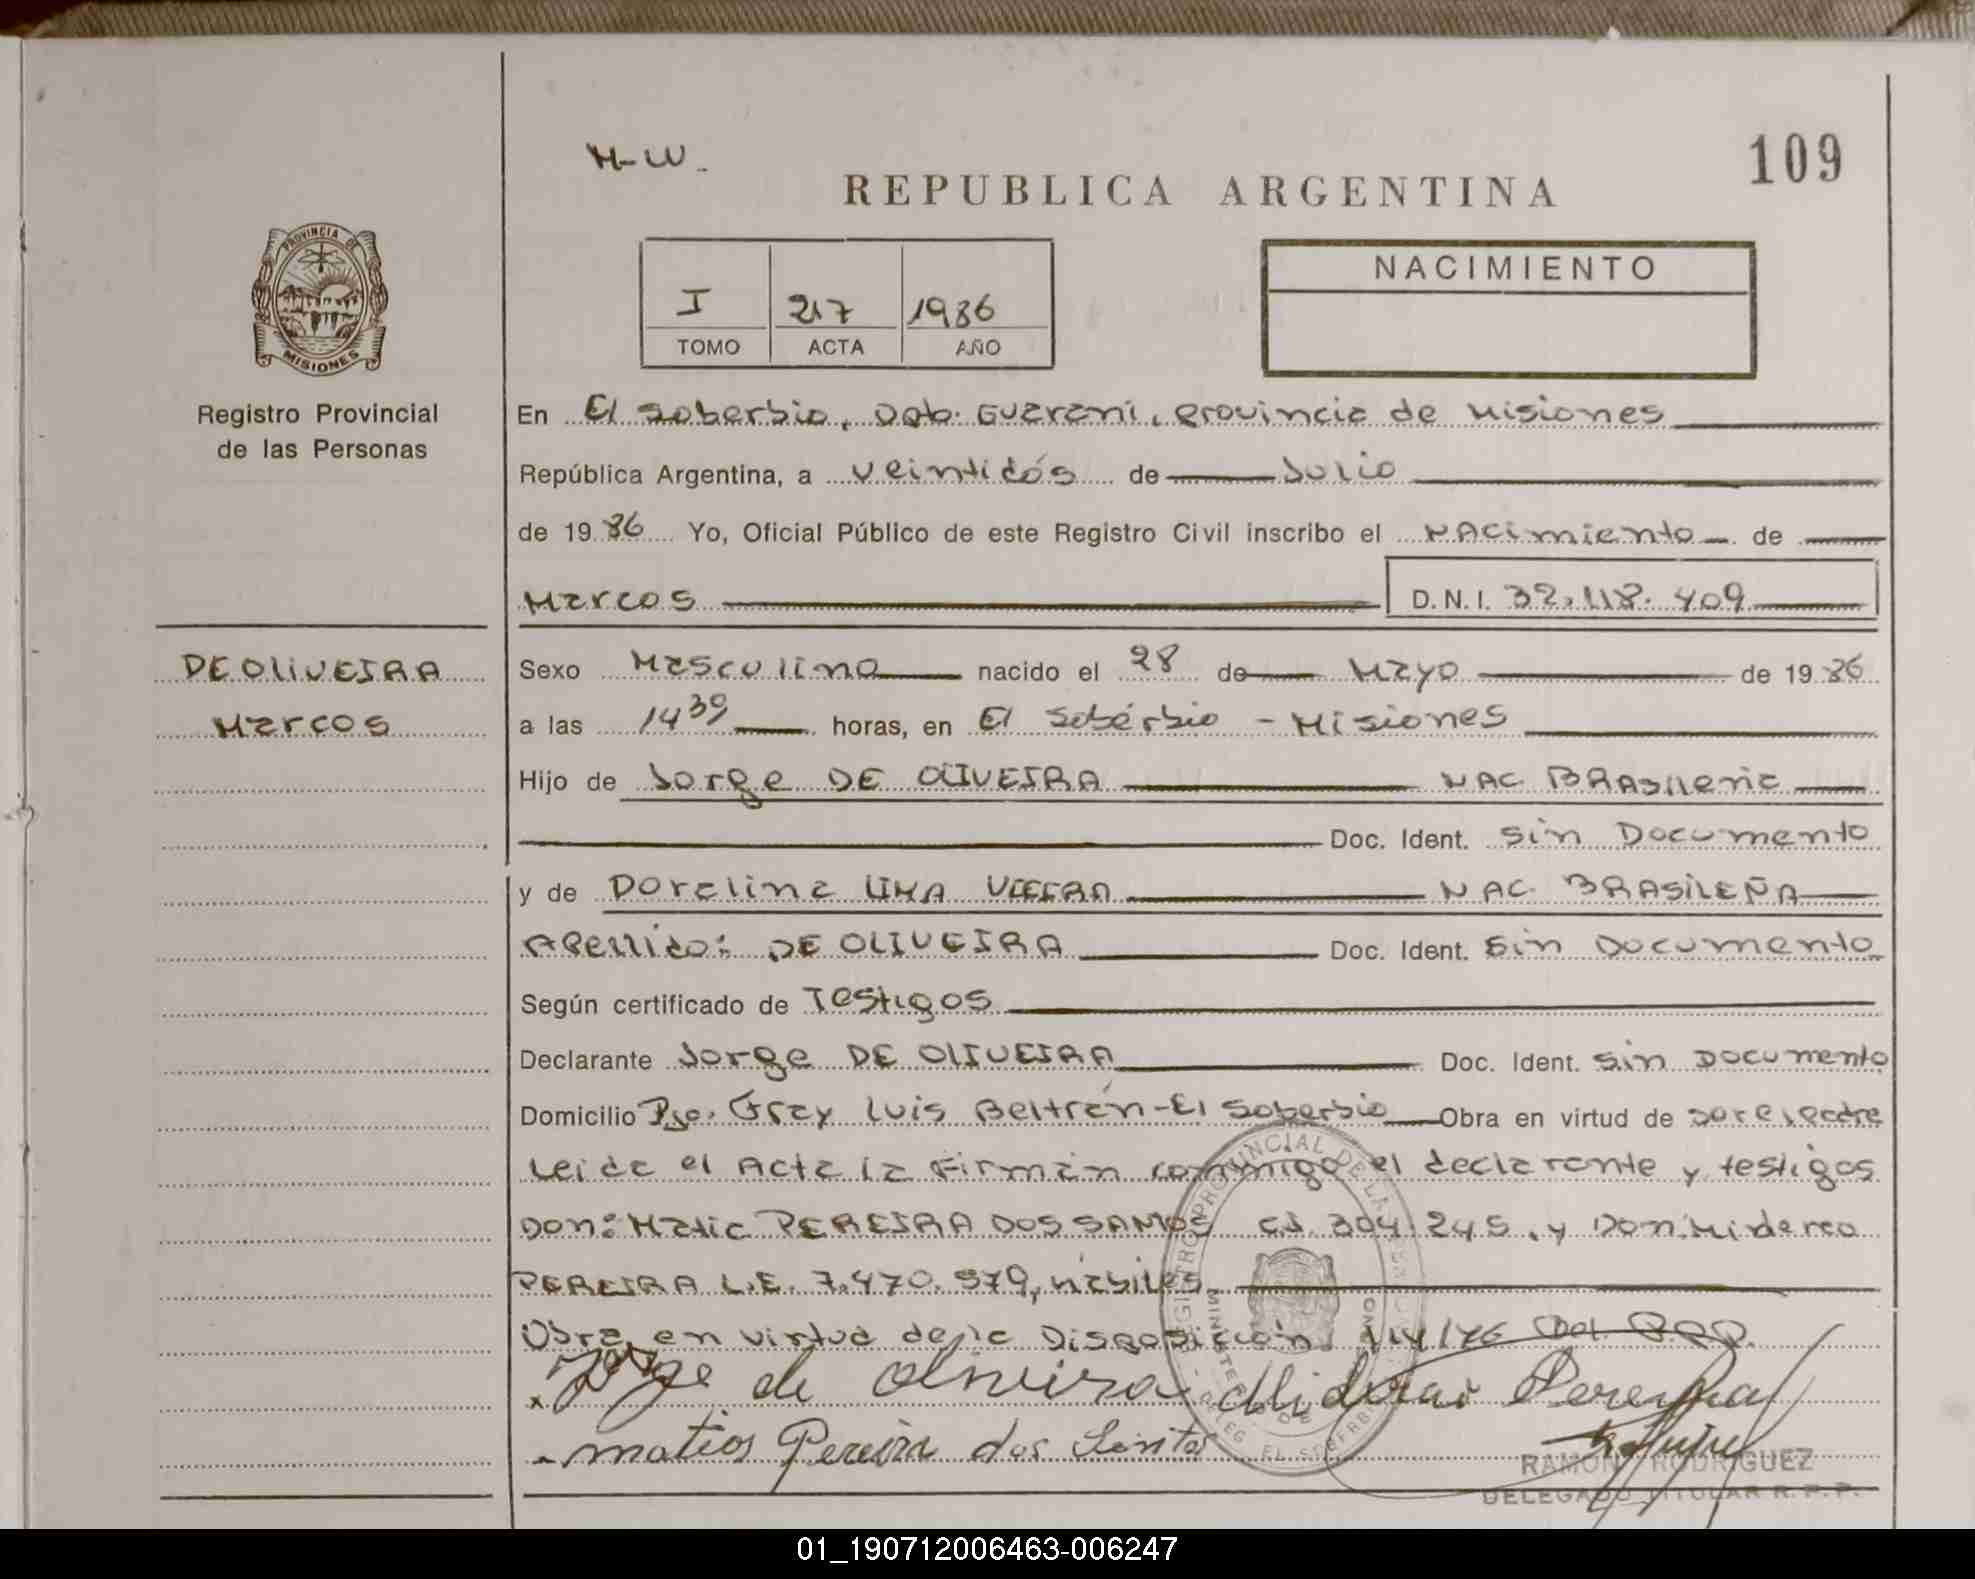 109
M-W.
REPUBLICA ARGENTINA
PROVINCIA DE
MISIONES
Registro Provincial
de las Personas
I 217 1986
TOMO ACTA AÑO
NACIMIENTO
En El Soberbio, Dpto. Guarani, Provincia de Misiones
República Argentina, a veintidós de Julio
de 1986 Yo, Oficial Público de este Registro Civil inscribo el NACimiento de
Marcos D.N.I. 32.118.409
DE OLIVEIRA
Marcos
Sexo Masculino nacido el 28 de Mayo de 1986
a las 14 39 horas, en El Sobérbio - Misiones
Hijo de Jorge DE OLIVEIRA NAC BRAsileña
Doc. Ident. Sin Documento
y de Doralina LIMA VIEIRA NAC. BRASILEÑA
Apellido: DE OLIVEIRA Doc. Ident. Sin Documento
Según certificado de Testigos
Declarante Jorge DE OLIVEIRA Doc. Ident. Sin Documento
Domicilio Pje. Fray Luis Beltrán - El Soberbio Obra en virtud de ser el padre
Leida el Acta la Firman conmigo el declarante y testigos
Don: Matia PEREIRA DOS SANTOS C.I. 304.245. y Don: Miderco
PEREIRA L.E. 7.470.979, hábiles
Obra en virtud de la Disposición 114/76 Del. R.P.P.
x Jorge de oliveira Miderco Pereira
- matios Pereira dos Santos
RAMON RODRIGUEZ
DELEGADO TITULAR R.P.P.
REGISTRO PROVINCIAL DE LAS PERSONAS
DELEG. EL SOBERBIO
01_190712006463-006247